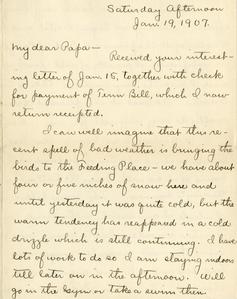 Saturday Afternoon
Jan. 19, 1907.
My dear Papa—
Received your interest-
ing letter of Jan 15, together with check
for payment of Term Bell, which I now
return receipted.
I can well imagine that this re-
cent spell of bad weather is bringing the
birds to the Feeding Place — we have about
four or five inches of snow here and
until yesterday it was quite cold, but the
warm tendency has reappeared in a cold
drizzle which is still continuing. I have
lots of work to do so I am staying indoors
till later on in the afternoon. Will
go in the Gym or take a swim then